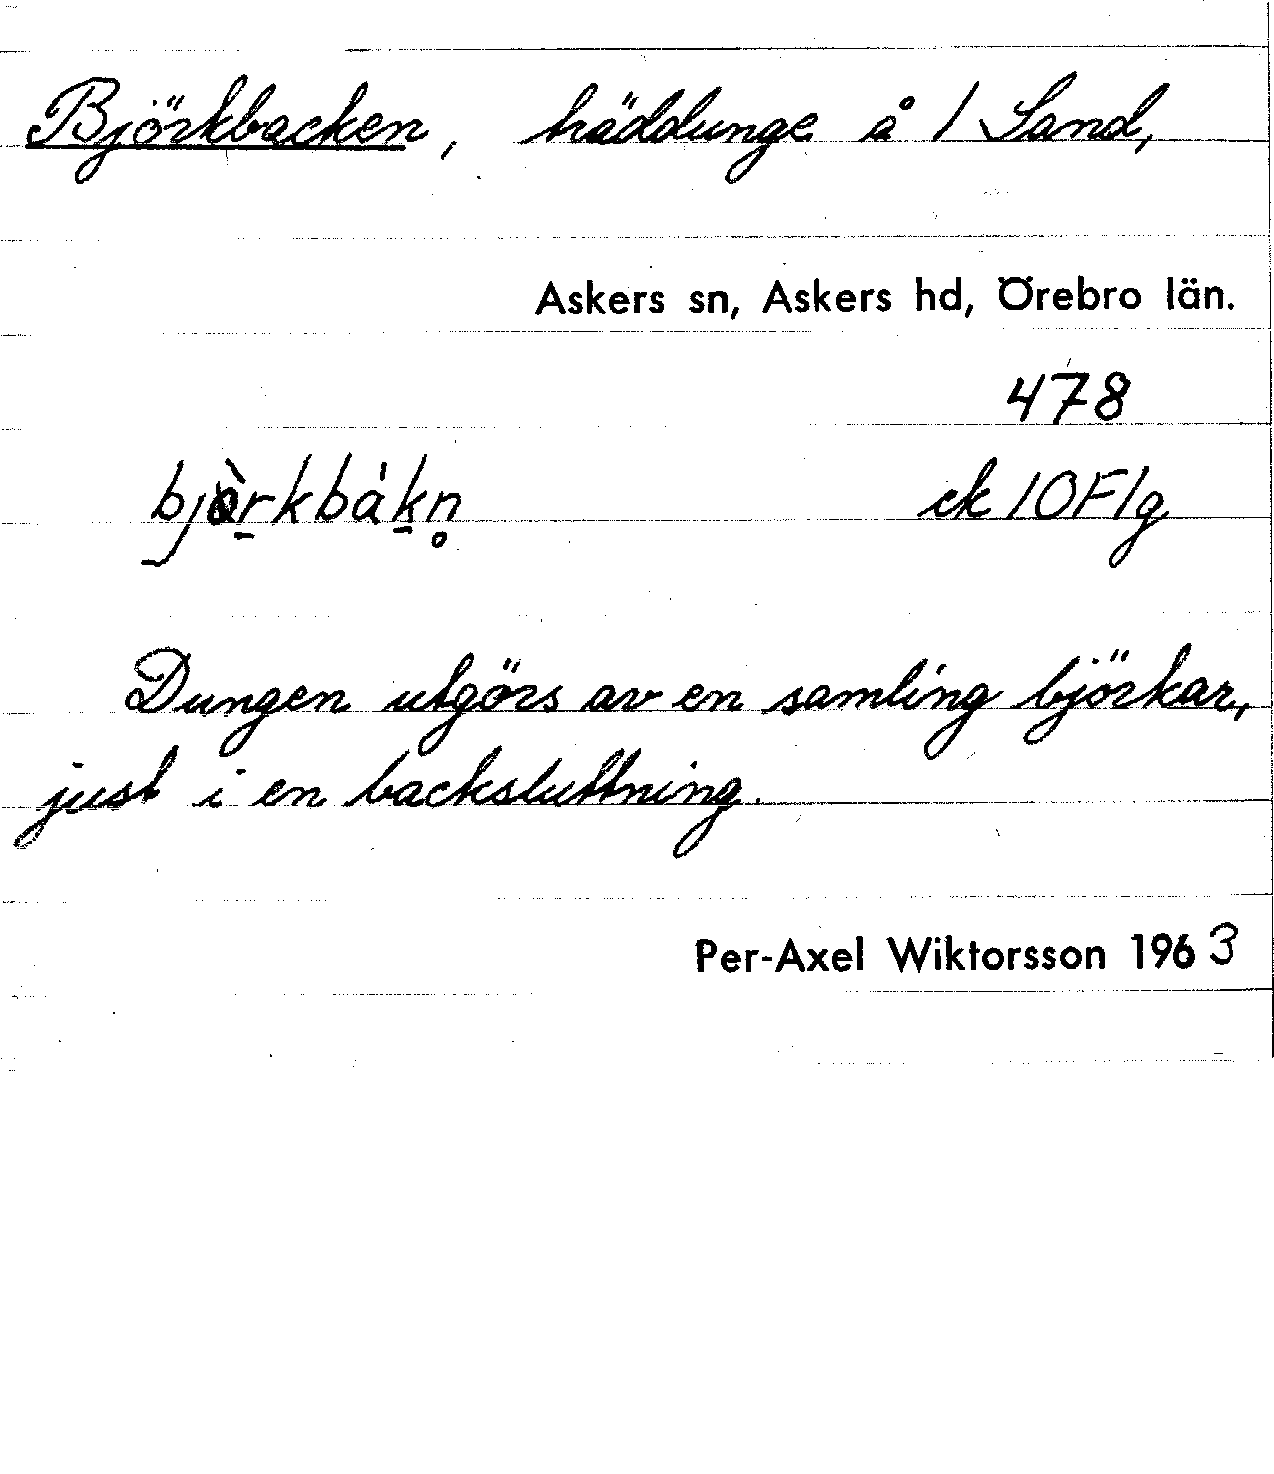 Björkbacken, träddunge å 1 Sand,
Askers sn, Askers hd, Örebro län.
478
bjòrkbàkn̥ ek 10F1g
Dungen utgörs av en samling björkar,
just i en backsluttning.
Per-Axel Wiktorsson 1963